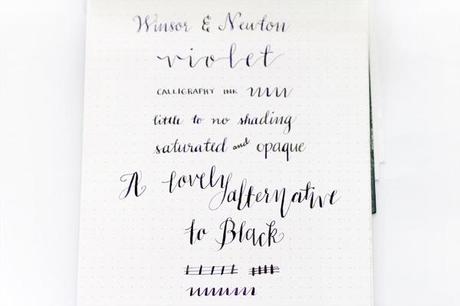 Winsor & Newton
violet
CALLIGRAPHY INK
little to no shading
saturated and opaque
A lovely alternative
to Black